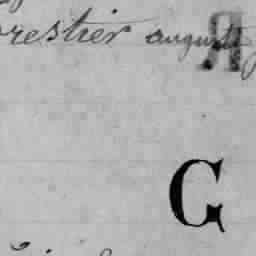 orestier auguste
R
G